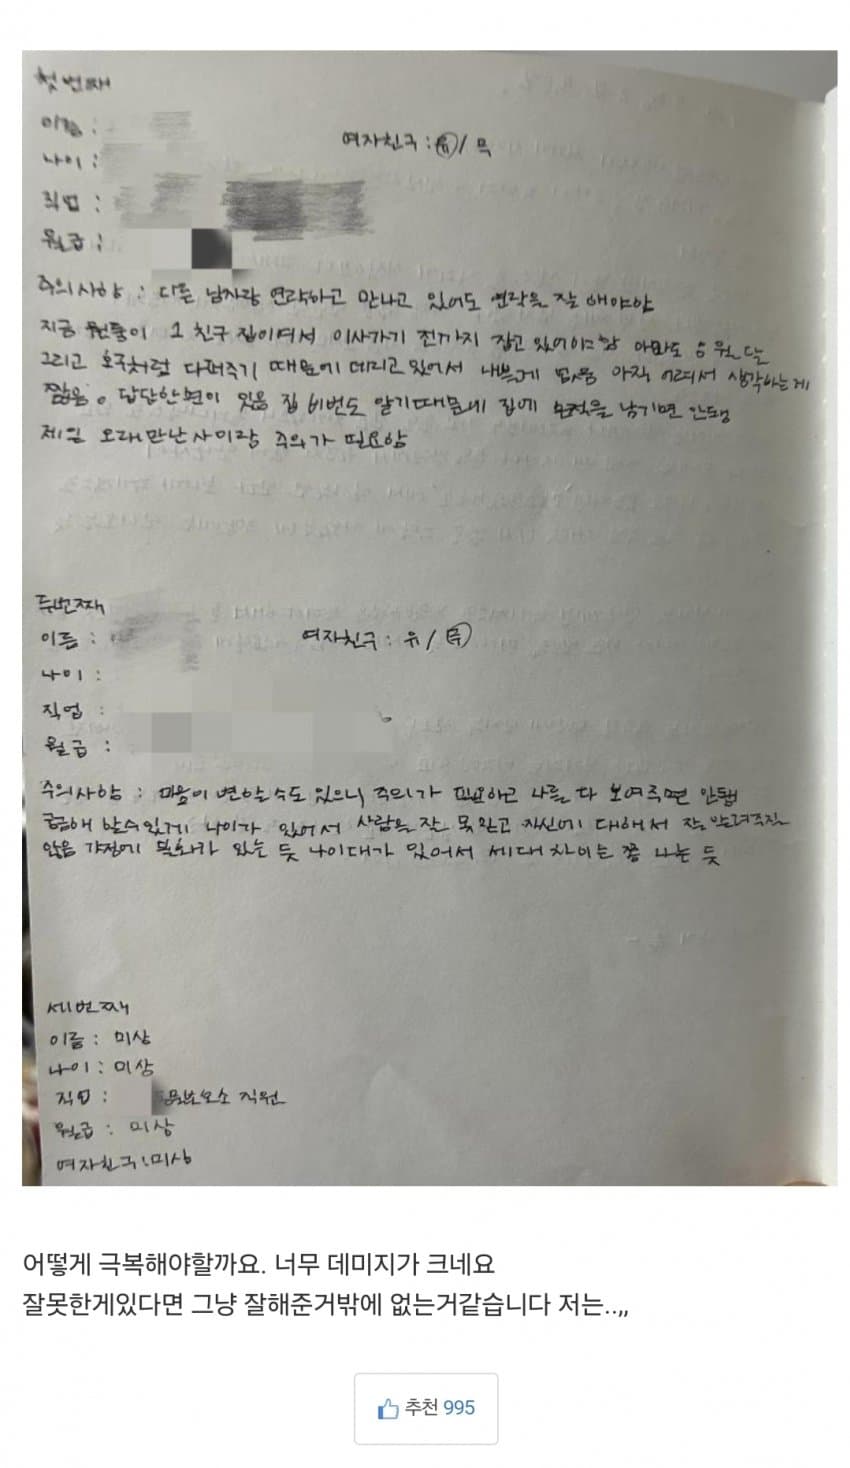 첫번째
이름 :
나이 :
여자친구 : 유 / 무
직업 :
월급 :
주의사항 : 다른 남자랑 연락하고 만나고 있어도 연락을 잘 해야함
지금 원룸이 그 친구 집이여서 이사가기 전까지 잡고 있어야함 아마도 월달
그리고 호구처럼 다퍼주기 때문에 데리고 있어서 나쁘게 없음 아직 어려서 생각하는게
짧음. 답답한면이 있음 집 비번도 알기때문에 집에 흔적을 남기면 안됨
제일 오래만난사이라 주의가 필요함
두번째
이름 :
여자친구 : 유 / 무
나이 :
직업 :
월급 :
주의사항 : 마음이 변할수도 있으니 주의가 필요하고 나를 다 보여주면 안됨
궁금해 할수있게 나이가 있어서 사람을 잘 못믿고 자신에 대해서 잘 알려주질
않음 가정에 불화가 있는 듯 나이대가 있어서 세대차이는 쫌 나는 듯
세번째
이름 : 미상
나이 : 미상
직업 : 직원
월급 : 미상
여자친구 : 미상
어떻게 극복해야할까요. 너무 데미지가 크네요
잘못한게있다면 그냥 잘해준거밖에 없는거같습니다 저는..,,
추천 995